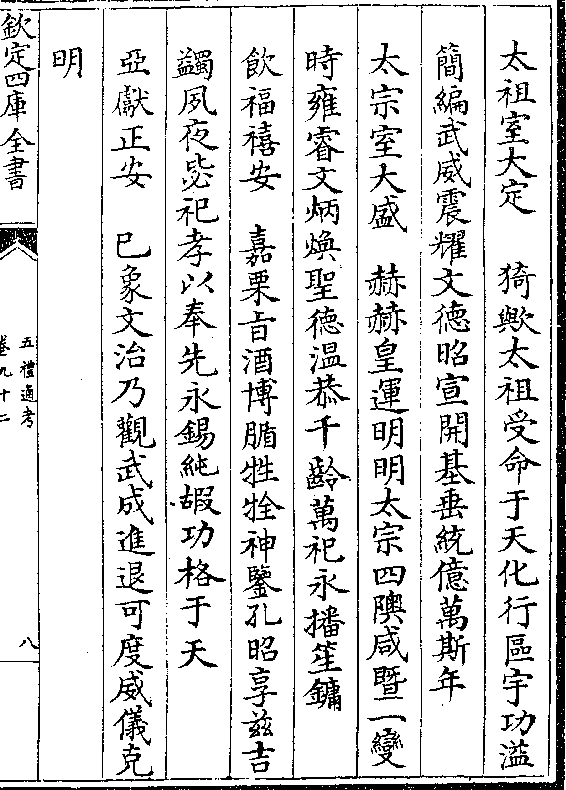 太祖室大定　猗歟太祖受命于天化行區宇功溢
簡編武威震耀文德昭宣開基垂統億萬斯年
太宗室大盛　赫赫皇運明明太宗四隩咸暨一變
時雍睿文炳煥聖德温恭千齡萬祀永播笙鏞
飲福禧安　嘉栗旨酒博腯牲牷神鑒孔昭享兹吉
蠲夙夜毖祀孝以奉先永錫純嘏功格于天
亞獻正安　已象文治乃觀武成進退可度威儀克
明
欽定四庫全書
五禮通考
卷九十二
八